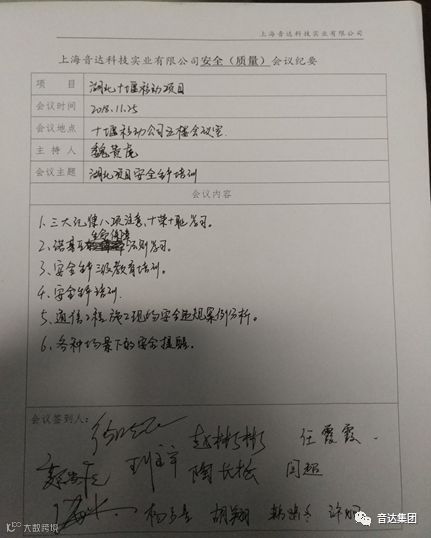 上海音达科技实业有限公司
上海音达科技实业有限公司安全（质量）会议纪要
项 目 湖北十堰移动项目
会议时间 2018.11.25
会议地点 十堰移动公司五楼会议室.
主 持 人 魏贵虎
会议主题 湖北项目安全生产培训
会议内容
1、三大纪律八项注意、十荣十耻学习。
2、诺基亚 生命保障 法则学习。
3、安全生产三级教育培训。
4、安全生产培训.
5、通信工程施工现场安全违规案例分析。
6、各种场景下的安全提醒。
会议签到人：
赵彬彬 任霞霞
陶长松 闫超
胡翔
音达集团
大数跨境